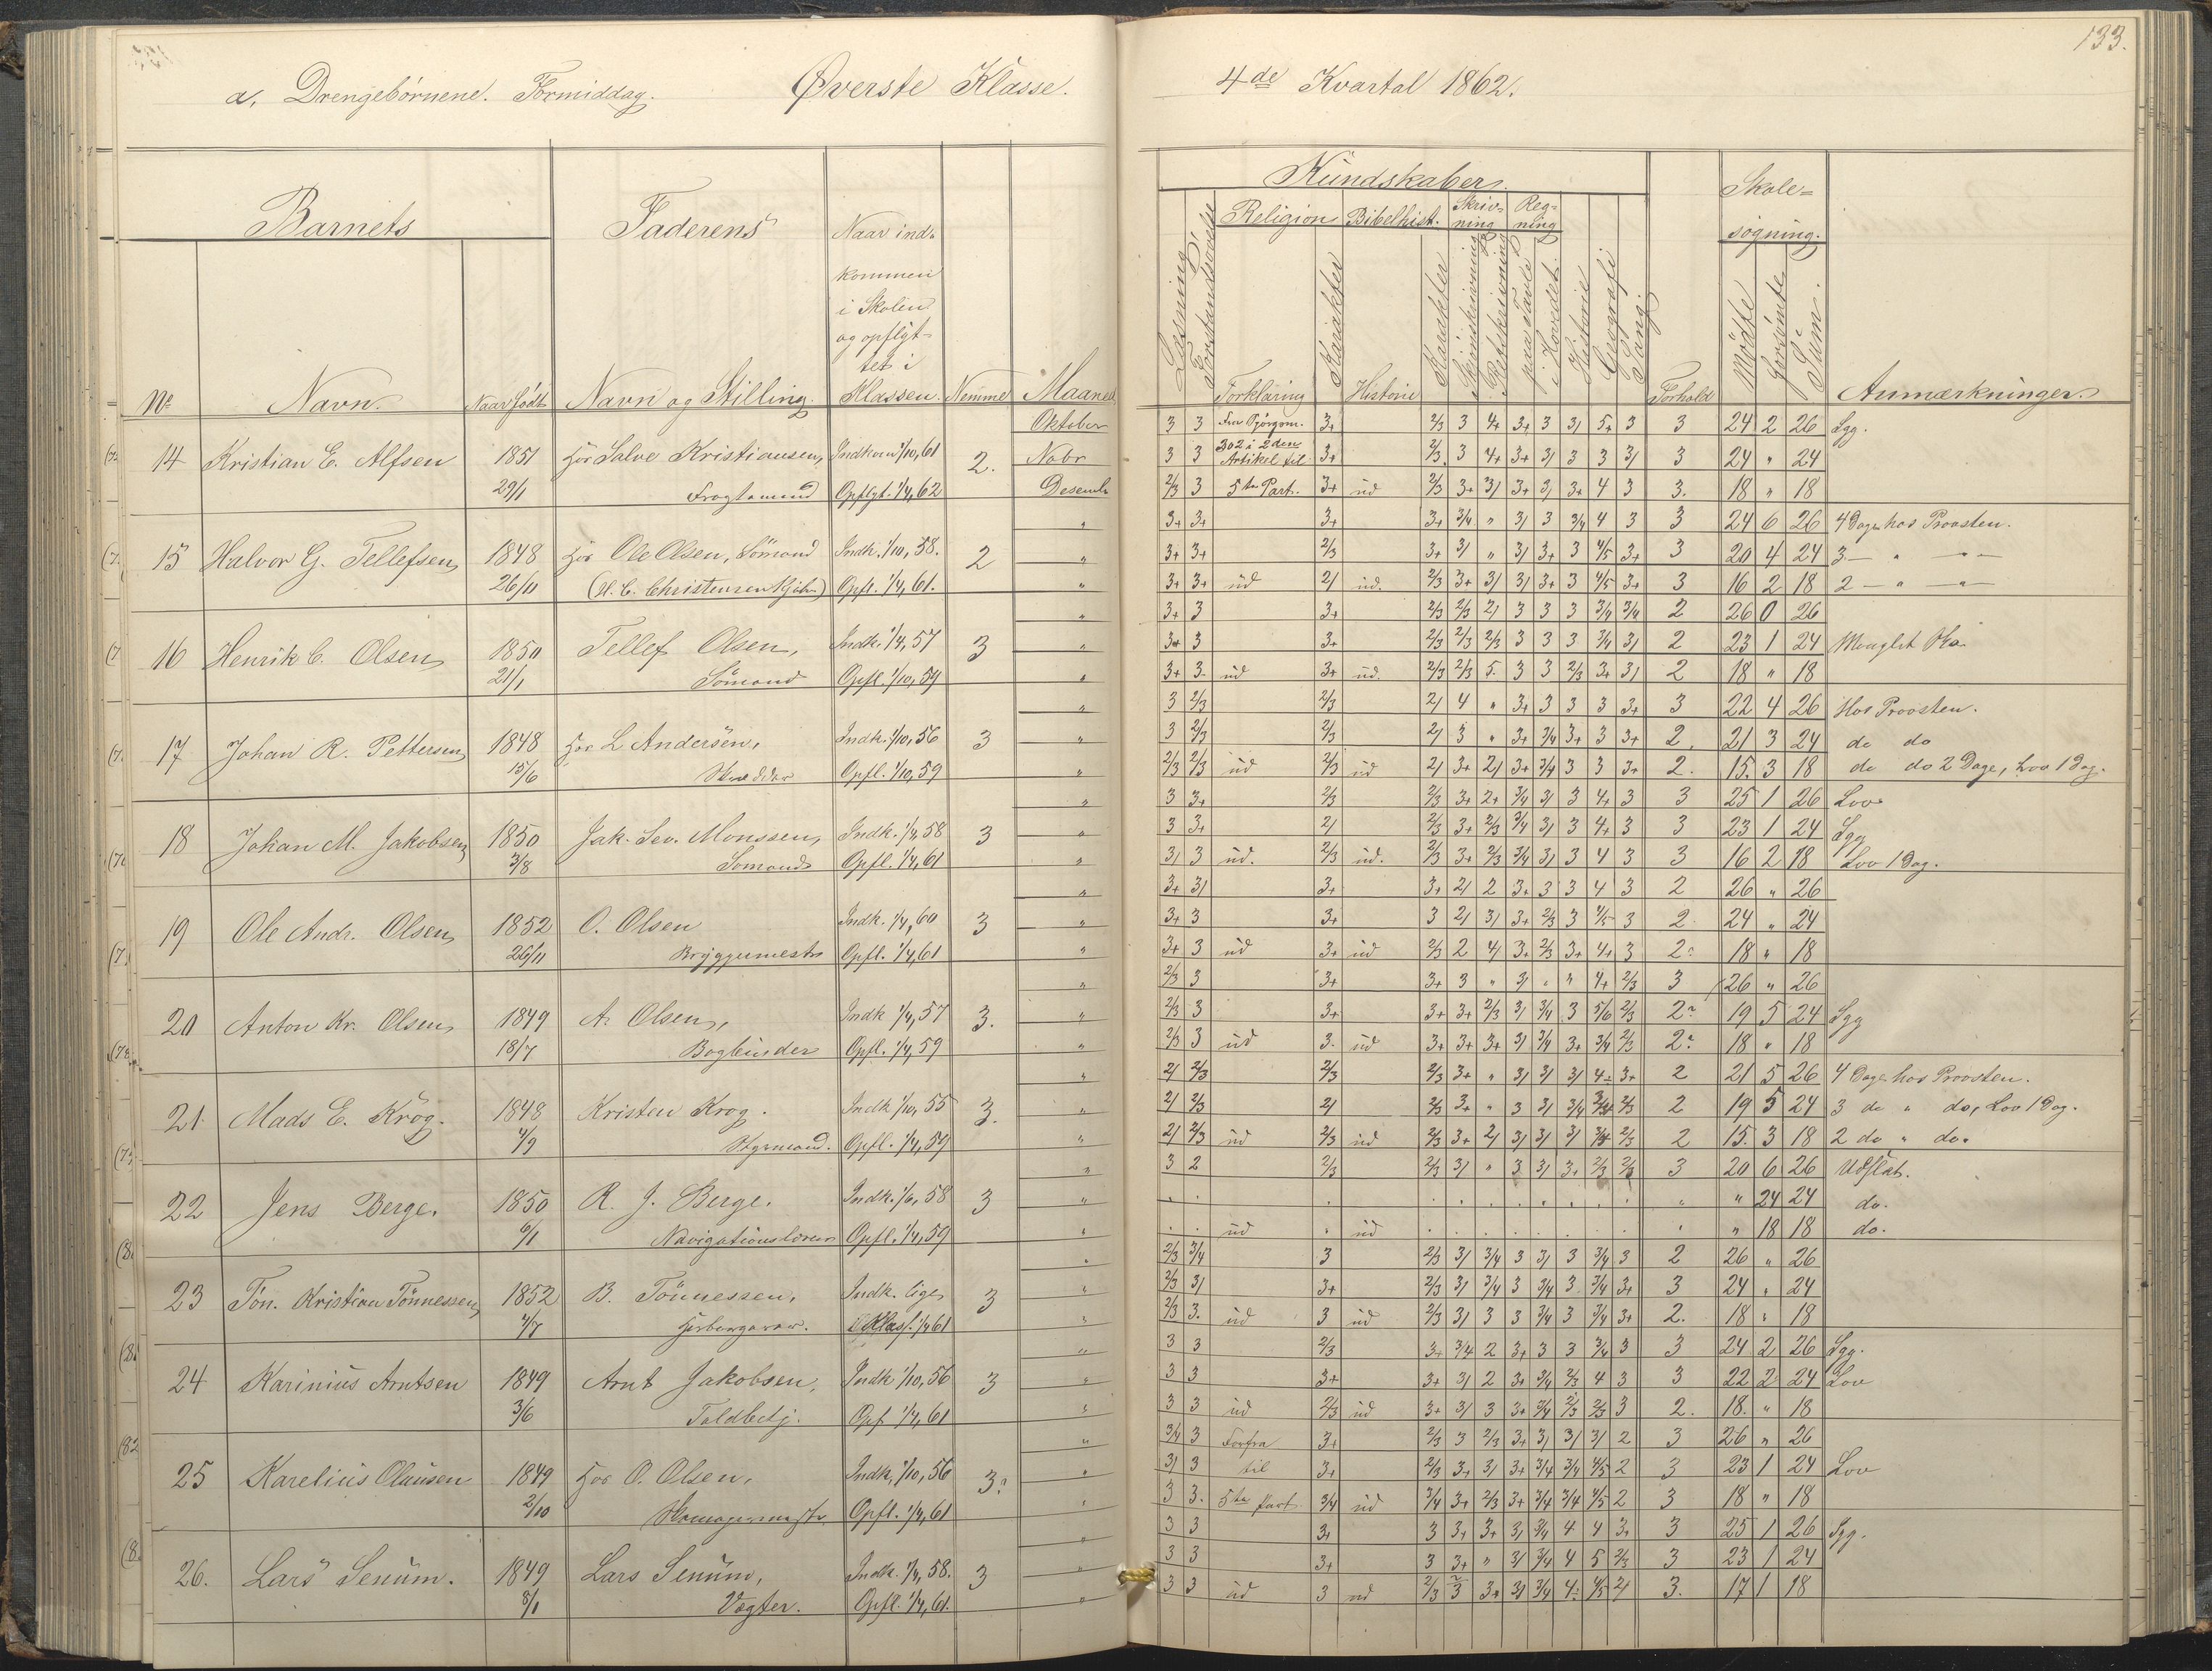 133.
a, Drengebørnene. Formiddag. Øverste Klasse. 4de Kvartal 1862.
Barnets Faderens Naar ind-
kommen
i Skolen
og opflyt-
tet i
Klassen.
No Navn. Naar født Navn og Stilling. Nemme Maaned
Kundskaber. Skole-
søgning.
Religion Bibelhist. Skriv-
ning Reg-
ning
Læsning Forstandsøvelse Forklaring Karakter Historie Karakter Skjönskrivning Retskrivning paa Tavle i Hovedet. Historie Geografi Sang Forhold Mødte Forsömte Sum. Anmærkninger.
Oktober 3 3 3+ 2/3 3 4+ 3+ 3 3/ 5+ 3 3 24 2 26 Syg.
14 Kristian E. Alfsen 1851 hos Salve Kristiansen, Indkom 1/10, 61 2. Nobr 3 3 302 i 2den Artikel til 3+ 2/3 3 4+ 3+ 3/ 3 3 3/ 3 24 " 24
29/1 Fragtemand Opflyt. 1/4, 62 Desembr 2/3 3 5te Part. 3+ ud 2/3 3+ 3/ 3+ 3/ 3+ 4 3 3. 18 " 18
" 3+ 3+ 3+ 3+ 3/4 " 3/ 3 3/4 4 3 3 24 6 26 4 Dage hos Provsten.
15 Halvor G. Tellefsen 1848 hos Ole Olsen, Sömand Indk. 1/10, 58. 2 " 3+ 3+ 2/3 3+ 3/ " 3/ 3+ 3 4/5 3+ 3 20 4 24 3 — " — " —
26/11 Opfl. 1/4, 61. " 3+ 3+ ud 2/ ud. 2/3 3+ 3/ 3/ 3+ 3 4/5 3+ 3 16 2 18 2 — " — " —
" 3+ 3 3+ 2/3 2/3 2/ 3 3 3 3/4 3/4 2 26 0 26
16 Henrik C. Olsen 1850 Tellef Olsen, Indk. 1/4, 57 3 " 3+ 3 3+ 2/3 2/3 2/3 3 3 3 3/4 3/ 2 23 1 24
21/1 Sömand Opfl. 1/10, 59 " 3+ 3. ud 3+ ud. 2/3 2/3 5. 3 3 2/3 3+ 3/ 2 18 " 18
" 3 2/3 2/3 2/ 4 " 3+ 3 3 3 3+ 3 22 4 26 Hos Provsten.
17 Johan R. Pettersen 1848 hos L. Andersen, Indk. 1/10, 56 3 " 3 2/3 2/3 2/ 3 " 3+ 3/4 3+ 3 3+ 2. 21 3 24 do do
15/6 Skrædder Opfl. 1/10, 59 " 2/3 2/3 ud 2/3 ud 2/ 3+ 2/ 3+ 3/4 3 3 3+ 2. 15. 3 18 do do 2 Dage, Lov 1 Dag.
" 3 3+ 2/3 2/3 3+ 2+ 3/4 3/ 3 4+ 3 3 25 1 26 Lov
18 Johan M. Jakobsen 1850 Jak. Sev. Monssen, Indk. 1/4, 58 3 " 3 3+ 2/ 2/3 3+ 2/3 3/4 3/ 3 4+ 3 3 23 1 24 Syg
3/8 Sömand Opfl. 1/4, 61 " 3/ 3 ud. 2/3 ud. 2/3 3+ 2/3 3/4 3/ 3 4 3 3 16 2 18 Lov 1 Dag.
" 3+ 3/ 3+ 3+ 2/ 2 3+ 3 3 4 3 2 26 " 26
19 Ole Andr. Olsen 1852 O. Olsen Indk. 1/4, 60 3 " 3+ 3 3+ 3 2/ 3/ 3+ 2/3 3 4/5 3 2 24 " 24
26/11 Bryggemester Opfl. 1/4, 61 " 3+ 3 ud 3+ ud 2/3 2 4/ 3+ 2/3 3+ 4+ 3 2? 18 " 18
" 2/3 3 3+ 3+ 3 " 3/ " " 4+ 2/3 3 26 " 26
20 Anton Kr. Olsen 1849 A. Olsen, Indk 1/4, 57 3. " 2/3 3 3+ 3+ 3+ 2/3 3/ 3/4 3 5/6 2/3 2? 19 5 24 Syg
18/7 Bogbinder Opfl. 1/4, 59 " 2/3 3 ud 3. ud 3+ 3+ 3+ 3/ 3/4 3+ 3/4 2/3 2? 18 " 18
" 2/ 2/3 2/3 2/3 3+ " 3/ 3/ 3/ 4÷ 3+ 2 21 5 26 4 Dage hos Provsten.
21 Mads E. Krog. 1848 Kristen Krog. Indk 1/10, 55 3. " 2/ 2/3 2/ 2/3 3+ " 3 3/ 3/4 2/3 2 19 5 24 3 do " do, Lov 1 Dag.
4/9 Styrmand. Opfl. 1/4, 59 " 2/ 2/3 ud 2/3 ud 2/3 3+ 2/ 3/ 3/ 3/ 3/4 2/3 2 15. 3 18 2 do " do.
" 3 2 2/3 2/3 3/ " 3 3/ 3+ 2/3 2/3 3 20 6 26 Udflät.
22 Jens Berge. 1850 R. J. Berge. 3 " " 24 24 do.
6/1 Navigationslærer Opfl. 1/4, 59 " ud ud " 18 18 do.
" 2/3 3/4 3 2/3 3/ 3/4 3 3/ 3 3/4 3 2 26 " 26
23 Tön. Kristian Tönnessen 1852 B. Tönnessen, Indk. lige 3 " 2/3 3/ 3+ 2/3 3/ 3/4 3 3/4 3 3/4 3+ 3 24 " 24
4/7 i Klas. 1/4 61 " 2/3 3. ud 3 ud 2/3 3/ 3 3 3/4 3 3/4 3+ 2. 18 " 18
" 3 3 2/3 3+ 3/4 2 3+ 3 3 3/4 3 3 24 2 26 Syg.
24 Karinius Arntsen 1849 Arnt Jakobsen, Indk 1/10, 56 3 " 3 3 3+ 3+ 3/ 2 3+ 3/4 2/3 4 3 3 22 2 24 Lov
3/6 Toldbetj. Opf 1/4, 61 " 3 3 ud 2/3 ud 3+ 3/ 3 3+ 3/4 2/3 2/3 3 2. 18. " 18
" 3/4 3 Forfra 3+ 2/3 3 2/3 3+ 3/ 3/ 3/ 2 3 26 " 26
25 Karelius Olausen 1849 hos O. Olsen, Indk, 1/10, 56 3? " 3/ 3 til 3+ 2/3 3+ 3/ 3+ 3/4 3/4 4/5 2 3 23 1 24 Lov
2/10 Opfl. 1/4, 61 " 3 3. 5te Part 3/4 ud 3/4 3+ 2/3 3+ 3/4 3/4 4/5 2 3 18 " 18
" 3 3 3+ 3 3+ 3+ 3/ 3/4 4 4 3+ 3 25 1 26 Syg.
26. Lars Senum. 1849 Lars Senum, Indk. 1/4, 58. 3 " 3 3 3+ 3 3+ " 3/ 3/4 4 5 2/3 3 23 1 24
8/1 Vægter. Opfl. 1/4, 61. " 3 3 ud 3 ud 2/3 2/3 3+ 3/ 3/4 4÷ 4/5 2/ 3. 17 1 18